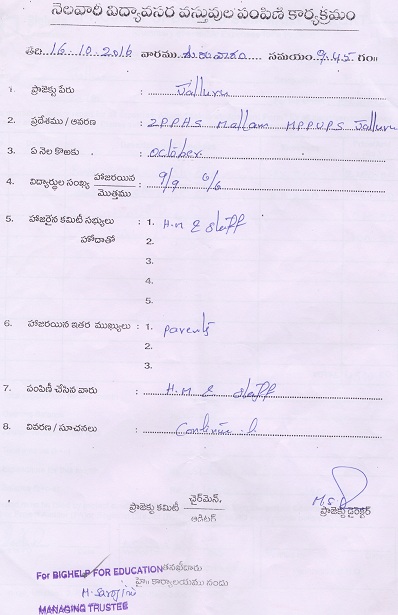 నెలవారి విద్యావసర వస్తువుల పంపిణి కార్యక్రమం
తేది 16.10.2016 వారము గురువారం సమయం 9.45 గం॥
1. ప్రాజెక్టు పేరు : Jalluru
2. ప్రదేశము / ఆవరణ : ZPPHS Mallam MPPUPS Jalluru
3. ఏ నెల కొఱకు : October
4. విద్యార్థుల సంఖ్య హాజరయిన / మొత్తము : 9/9 6/6
5. హాజరైన కమిటీ సభ్యులు : 1. H.M & Staff
హోదాతో 2.
3.
4.
5.
6. హాజరయిన ఇతర ముఖ్యులు : 1. parents
2.
3.
7. పంపిణీ చేసిన వారు : H.M & staff
8. వివరణ / సూచనలు :
ప్రాజెక్టు కమిటీ ఛైర్మెన్. / ఆడిటర్
ప్రాజెక్టు డైరెక్టర్
For BIGHELP FOR EDUCATION తనఖీదారు
హె॥ కార్యాలయము నందు
M. Sarojini
MANAGING TRUSTEE